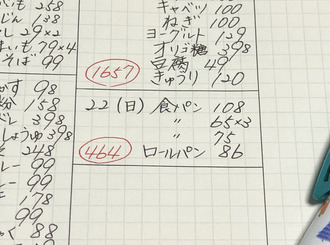 いも 258
じん 138
し 29×2
まいも 79×4
そば 99
かす 98
粉 158
398
しょうゆ 398
そ 248
レー 99
99
178
99
く 88
キャベツ 100
ねぎ 100
ヨーグルト 129
オリゴ糖 398
豆腐 49
1657 きゅうり 120
22(日) 食パン 108
〃 65×3
〃 75
464 ロールパン 86